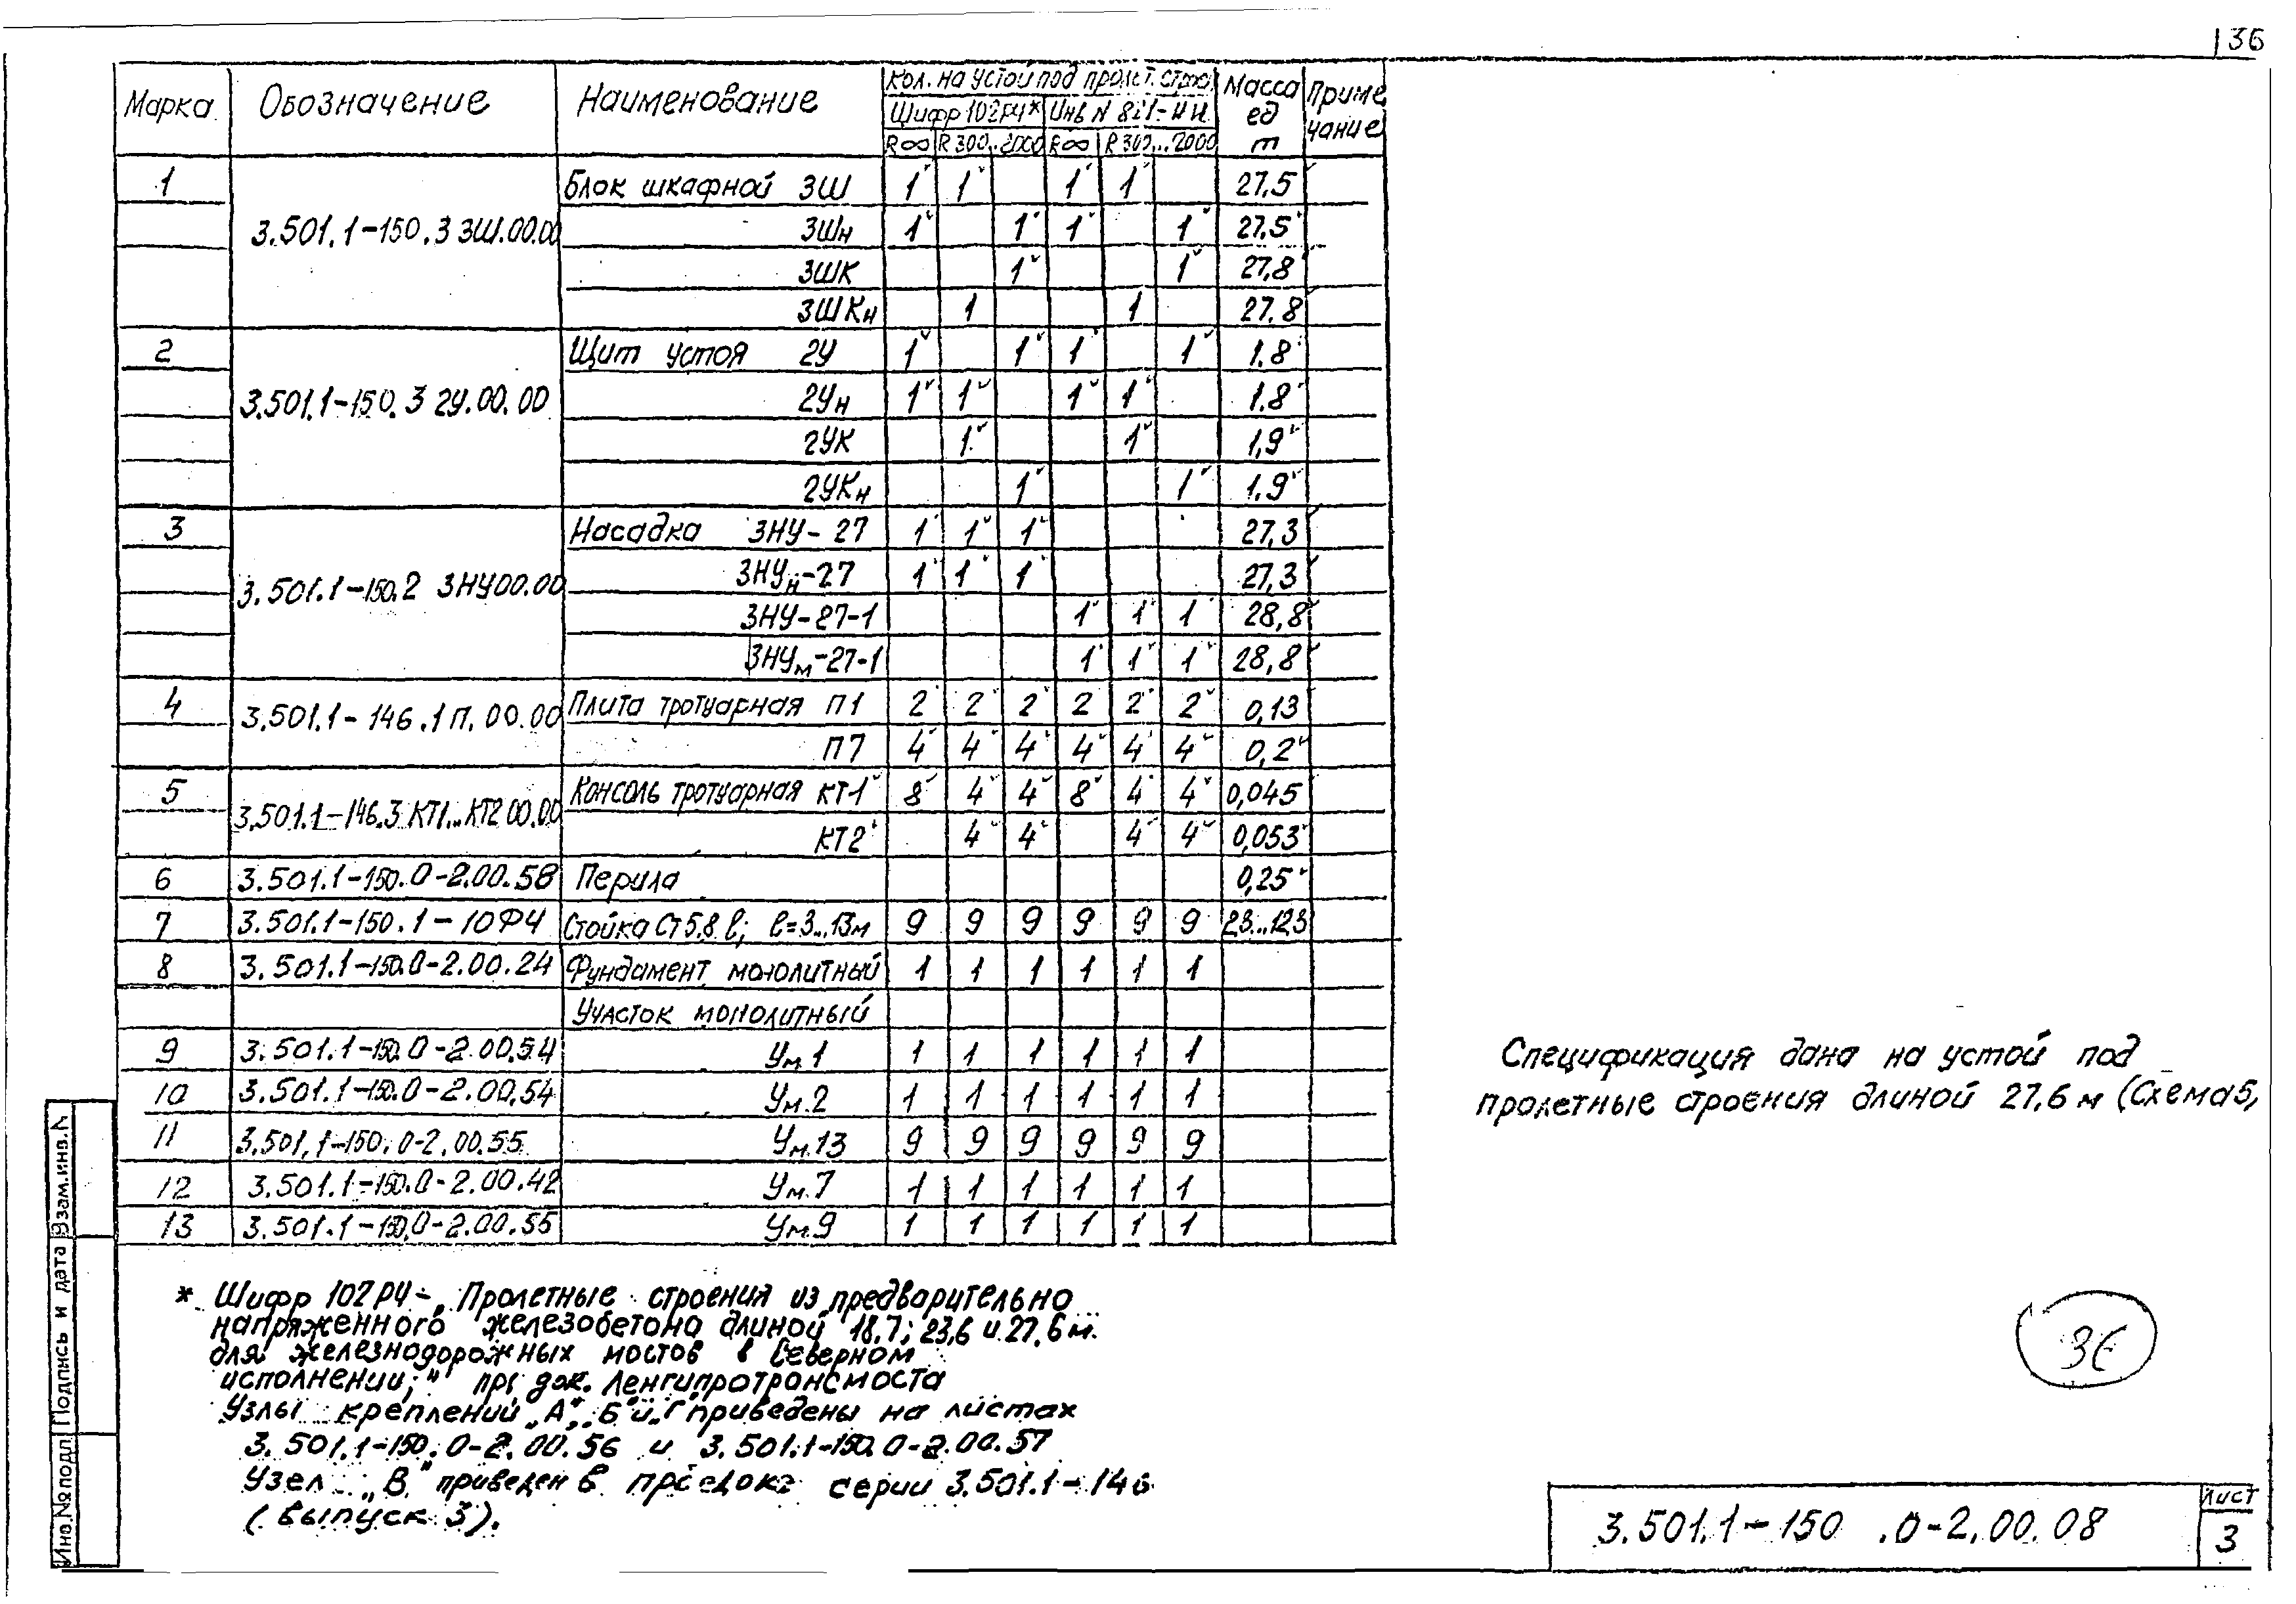 36
Марка Обозначение Наименование Кол. на устой под пролет. стро. Масса ед т Приме чание
Шифр 102РЧ* Инв N 821-ЧИ
R∞ R300..2000 R∞ R300...2000
1 3.501.1-150.3 3Ш.00.00 Блок шкафной 3Ш 1 1 1 1 27.5
3Шн 1 1 1 1 27,5
3ШК 1 1 27,8
3ШКн 1 1 27.8
2 3.501.1-150.3 2У.00.00 Щит устоя 2У 1 1 1 1 1.8
2Ун 1 1 1 1 1.8
2УК 1 1 1,9
2УКн 1 1 1.9
3 3.501.1-150.2 3НУ00.00 Насадка 3НУ-27 1 1 1 27,3
3НУн-27 1 1 1 27,3
3НУ-27-1 1 1 1 28,8
3НУм-27-1 1 1 1 28,8
4 3.501.1-146.1П.00.00 Плита тротуарная П1 2 2 2 2 2 2 0,13
П7 4 4 4 4 4 4 0,2
5 3.501.1-146.3 КТ1...КТ2 00.00 Консоль тротуарная КТ1 8 4 4 8 4 4 0,045
КТ2 4 4 4 4 0,053
6 3.501.1-150.0-2.00.58 Перила 0,25
7 3.501.1-150.1-10ФЧ Стойка Ст5.8.l; l=3...13м 9 9 9 9 9 9 2.3...12.3
8 3.501.1-150.0-2.00.24 Фундамент монолитный 1 1 1 1 1 1
Участок монолитный
9 3.501.1-150.0-2.00.54 Ум.1 1 1 1 1 1 1
10 3.501.1-150.0-2.00.54 Ум.2 1 1 1 1 1 1
11 3.501.1-150.0-2.00.55 Ум.13 9 9 9 9 9 9
12 3.501.1-150.0-2.00.42 Ум.7 1 1 1 1 1 1
13 3.501.1-150.0-2.00.55 Ум.9 1 1 1 1 1 1
Спецификация дана на устой под
пролетные строения длиной 27,6 м (Схема 5,
* Шифр 102РЧ-„Пролетные строения из предварительно
напряженного железобетона длиной 18.7; 23,6 и 27.6 м.
для железнодорожных мостов в Северном
исполнении;" док. Ленгипротрансмоста
Узлы креплений „А", „Б" и „Г" приведены на листах
3.501.1-150.0-2.00.56 и 3.501.1-150.0-2.00.57
Узел „В" приведен в серии 3.501.1-146
(выпуск 3).
36
3.501.1-150 .0-2.00.08
лист
3
Инв.№подл Подпись и дата Взам.инв.№